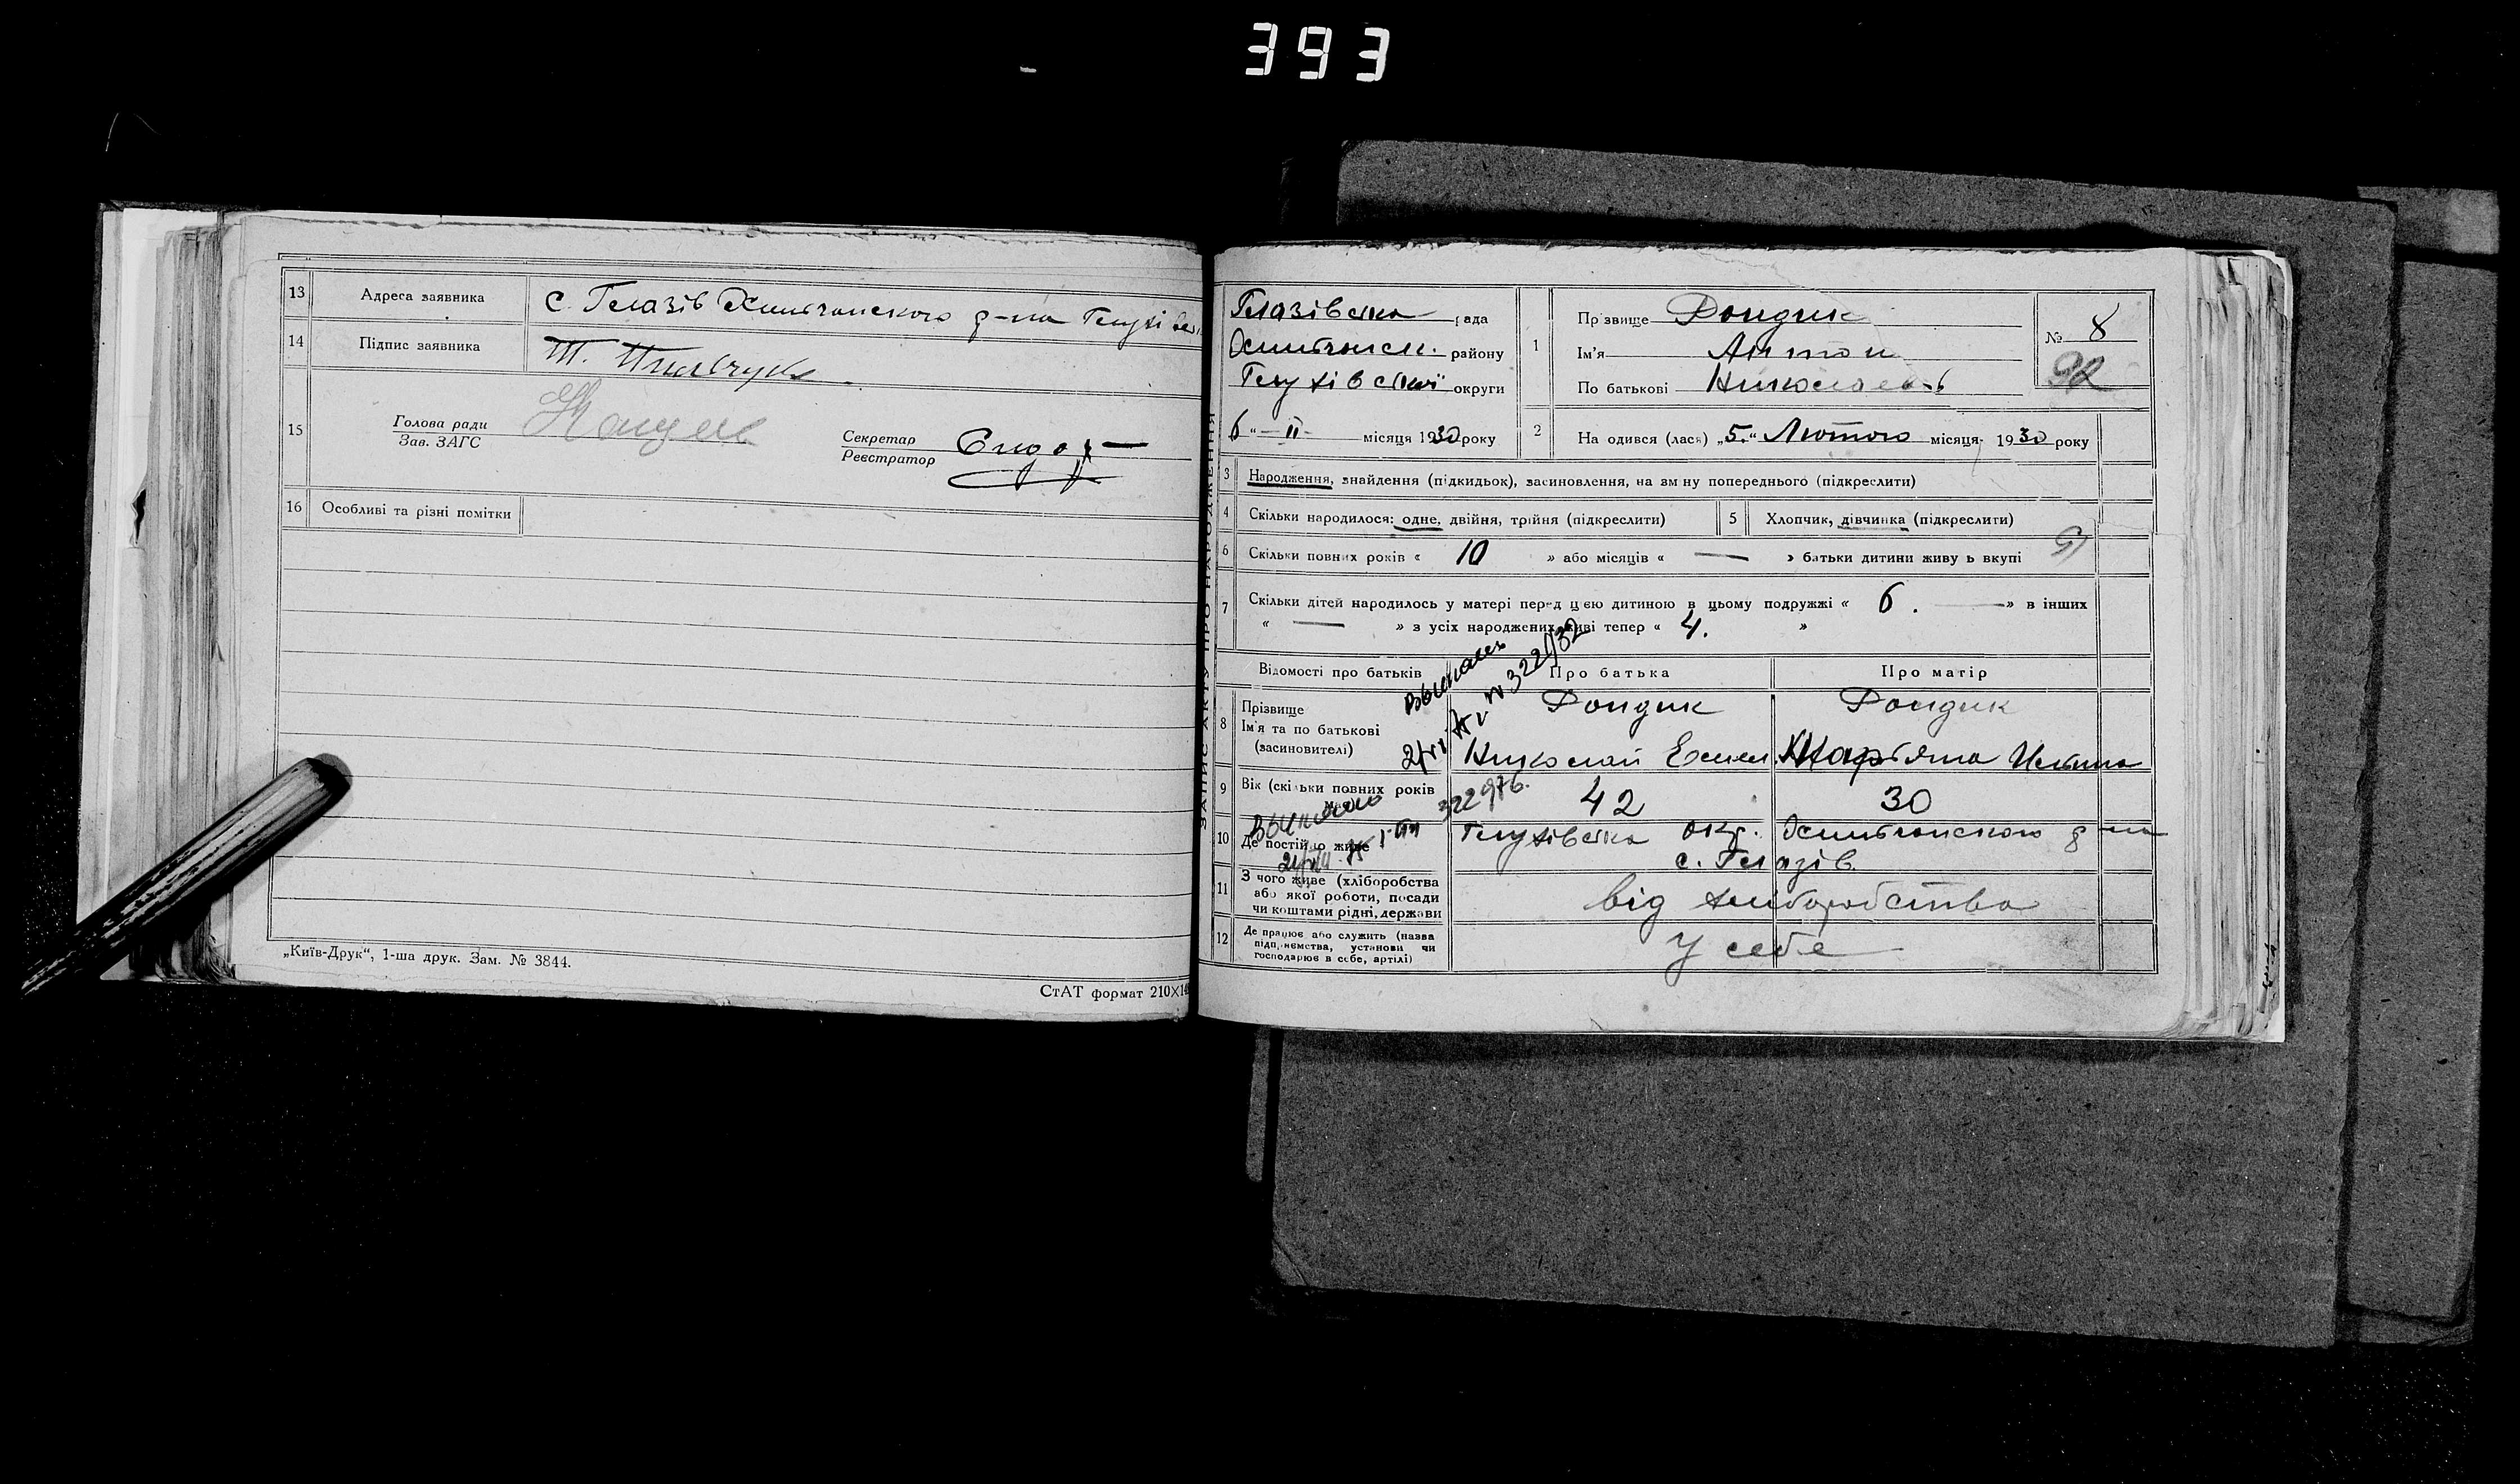 393
13 Адреса заявника с. Глазів Эсманського р-на Глухівськ
14 Підпис заявника
15 Голова ради
Зав. ЗАГС
Секретар
Реєстратор
16 Особливі та різні помітки
„Київ-Друк“, 1-ша друк. Зам. № 3844.
СтАТ формат 210×14
ЗАПИС АКТУ ПРО НАРОДЖЕННЯ
Глазівська рада
району
Глухівської округи
6 “ – II – місяця 1930 року
1 Прізвище Дондик
Ім'я Антон
По батькові Николаев
№ 8
92
2 На одився (лася) „5.“ Лютого місяця 1930 року
3 Народження, знайдення (підкидьок), засиновлення, на зм ну попереднього (підкреслити)
4 Скільки народилося: одне, двійня, трійня (підкреслити)
5 Хлопчик, дівчинка (підкреслити)
6 Скільки повних років « 10 » або місяців « — » батьки дитини живу ь вкупі
7 Скільки дітей народилось у матері перед цією дитиною в цьому подружжі « 6. —» в інших
« — » з усіх народжених живі тепер « 4. »
Відомості про батьків Про батька Про матір
8 Прізвище
Ім'я та по батькові
(засиновителі)
Дондик Дондик
Николай Емел. Марьяна
9 Вік (скільки повних років
42 30
10 Де постійно живе
Глухівська окр. Эсманського р-на
с. Глазів.
11 З чого живе (хліборобства
або якої роботи, посади
чи коштами рідні, держави
від хліборобства
12 Де працює або служить (назва
підприємства, установи чи
господарює в себе, артілі)
у себе